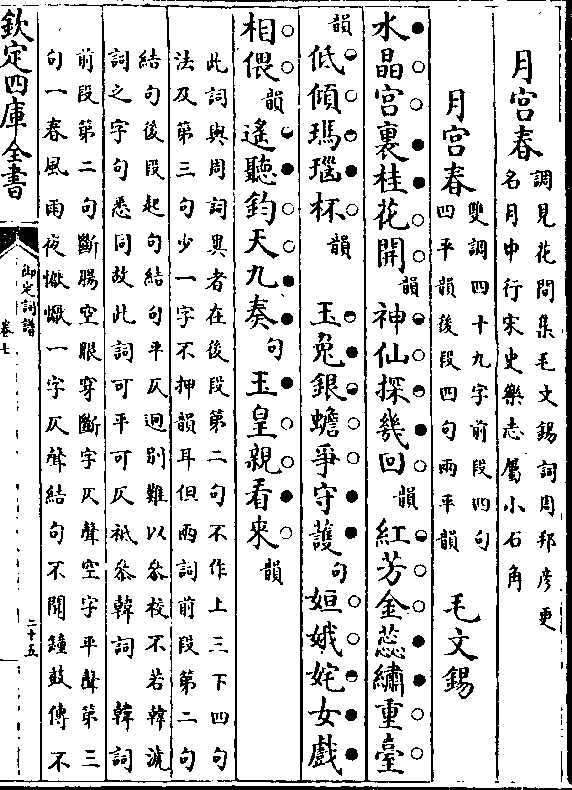 月宫春調見花間集毛文錫詞周邦彥更
名月中行宋史樂志屬小石角
月宫春雙調四十九字前段四句
四平韻後段四句兩平韻
毛文錫
水晶宫裏桂花開韻神仙探幾回韻紅芳金蕊繡重臺
韻低傾瑪瑙杯韻 玉兔銀蟾爭守護句姮娥姹女戲
相偎韻遙聽鈞天九奏句玉皇親看來韻
此詞與周詞異者在後段第二句不作上三下四句
法及第三句少一字不押韻耳但兩詞前段第二句
結句後段起句結句平仄迥别難以參校不若韓淲
詞之字句悉同故此詞可平可仄祇參韓詞 韓詞
前段第二句斷腸空眼穿斷字仄聲空字平聲第三
句一春風雨夜懨懨一字仄聲結句不聞鐘鼓傳不
欽定四庫全書
御定詞譜
卷七
二十五